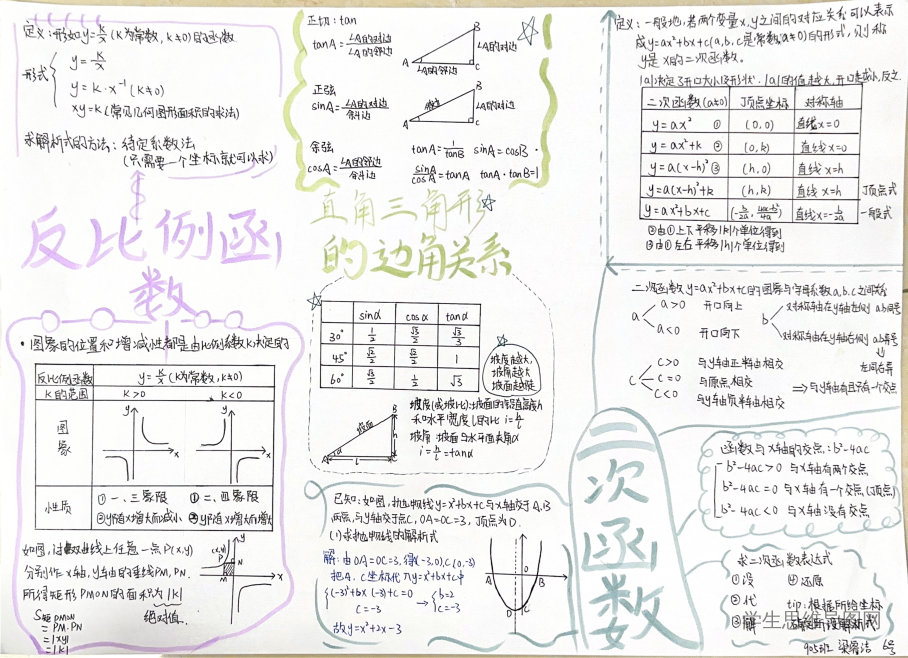 定义:形如y=k/x(k为常数,k≠0)的函数
形式
y=k/x
y=k·x⁻¹(k≠0)
xy=k(常见几何图形面积的求法)
求解析式的方法:待定系数法
(只需要一个坐标就可以求)
反比例函数
·图象的位置和增减性都是由比例系数k决定的
反比例函数 y=k/x(k为常数,k≠0)
k的范围 k>0 k<0
图象
y x
y x
性质 ①一、三象限 ①二、四象限
②y随x增大而减小 ②y随x增大而增大
如图,过双曲线上任意一点P(x,y)
分别作x轴,y轴的垂线PM,PN.
所得矩形PMON的面积为|k|
绝对值
S矩PMON
=PM·PN
=|xy|
=|k|
(x,y)
P N M x y
正切:tan
tanA=∠A的对边/∠A的邻边
A B C ∠A的对边 ∠A的邻边
正弦
sinA=∠A的对边/斜边
A B C 斜边 ∠A的对边
余弦
cosA=∠A的邻边/斜边
tanA=1/tanB sinA=cosB
sinA/cosA=tanA tanA·tanB=1
直角三角形
的边角关系
sinα cosα tanα
30° 1/2 √3/2 √3/3
45° √2/2 √2/2 1
60° √3/2 1/2 √3
坡度越大,
坡角越大
坡面越陡
坡度(或坡比):坡面的铅直高度h
和水平宽度l的比 i=h/l
坡角:坡面与水平面夹角α
i=h/l=tanα
A B C 坡面 h l α
已知:如图,抛物线y=x²+bx+c与x轴交于A.B
两点,与y轴交于点C,OA=OC=3,顶点为D.
(1)求抛物线的解析式
解:由OA=OC=3,得(-3,0),C(0,-3)
把A.C坐标代入y=x²+bx+c中
(-3)²+bx(-3)+c=0
c=-3
→ b=2
c=-3
故y=x²+2x-3
A O B C D
定义:一般地,若两个变量x,y之间的对应关系可以表示
成y=ax²+bx+c(a,b,c是常数,a≠0)的形式,则称
y是x的二次函数。
|a|决定了开口大小及形状.|a|的值越大,开口越小,反之
二次函数(a≠0) 顶点坐标 对称轴
y=ax² ① (0,0) 直线x=0
y=ax²+k ② (0,k) 直线x=0
y=a(x-h)² ③ (h,0) 直线x=h
y=a(x-h)²+k (h,k) 直线x=h 顶点式
y=ax²+bx+c (-b/2a,4ac-b²/4a) 直线x=-b/2a 一般式
②由①上下平移|k|个单位得到
③由①左右平移|h|个单位得到
二次函数y=ax²+bx+c的图象与字母系数a.b.c之间关系
a
a>0 开口向上
a<0 开口向下
b
对称轴在y轴左侧 ab同号
对称轴在y轴右侧 ab异号
左同右异
c
c>0 与y轴正半轴相交
c=0 与原点相交
c<0 与y轴负半轴相交
⇒与y轴有且只有一个交点
二次函数
函数与x轴的交点:b²-4ac
b²-4ac>0 与x轴有两个交点
b²-4ac=0 与x轴有一个交点(顶点)
b²-4ac<0 与x轴没有交点
求二次函数表达式
①设 ④还原
②代 tip:根据所给坐标
③解
学生思维导图网
905班 梁 6号